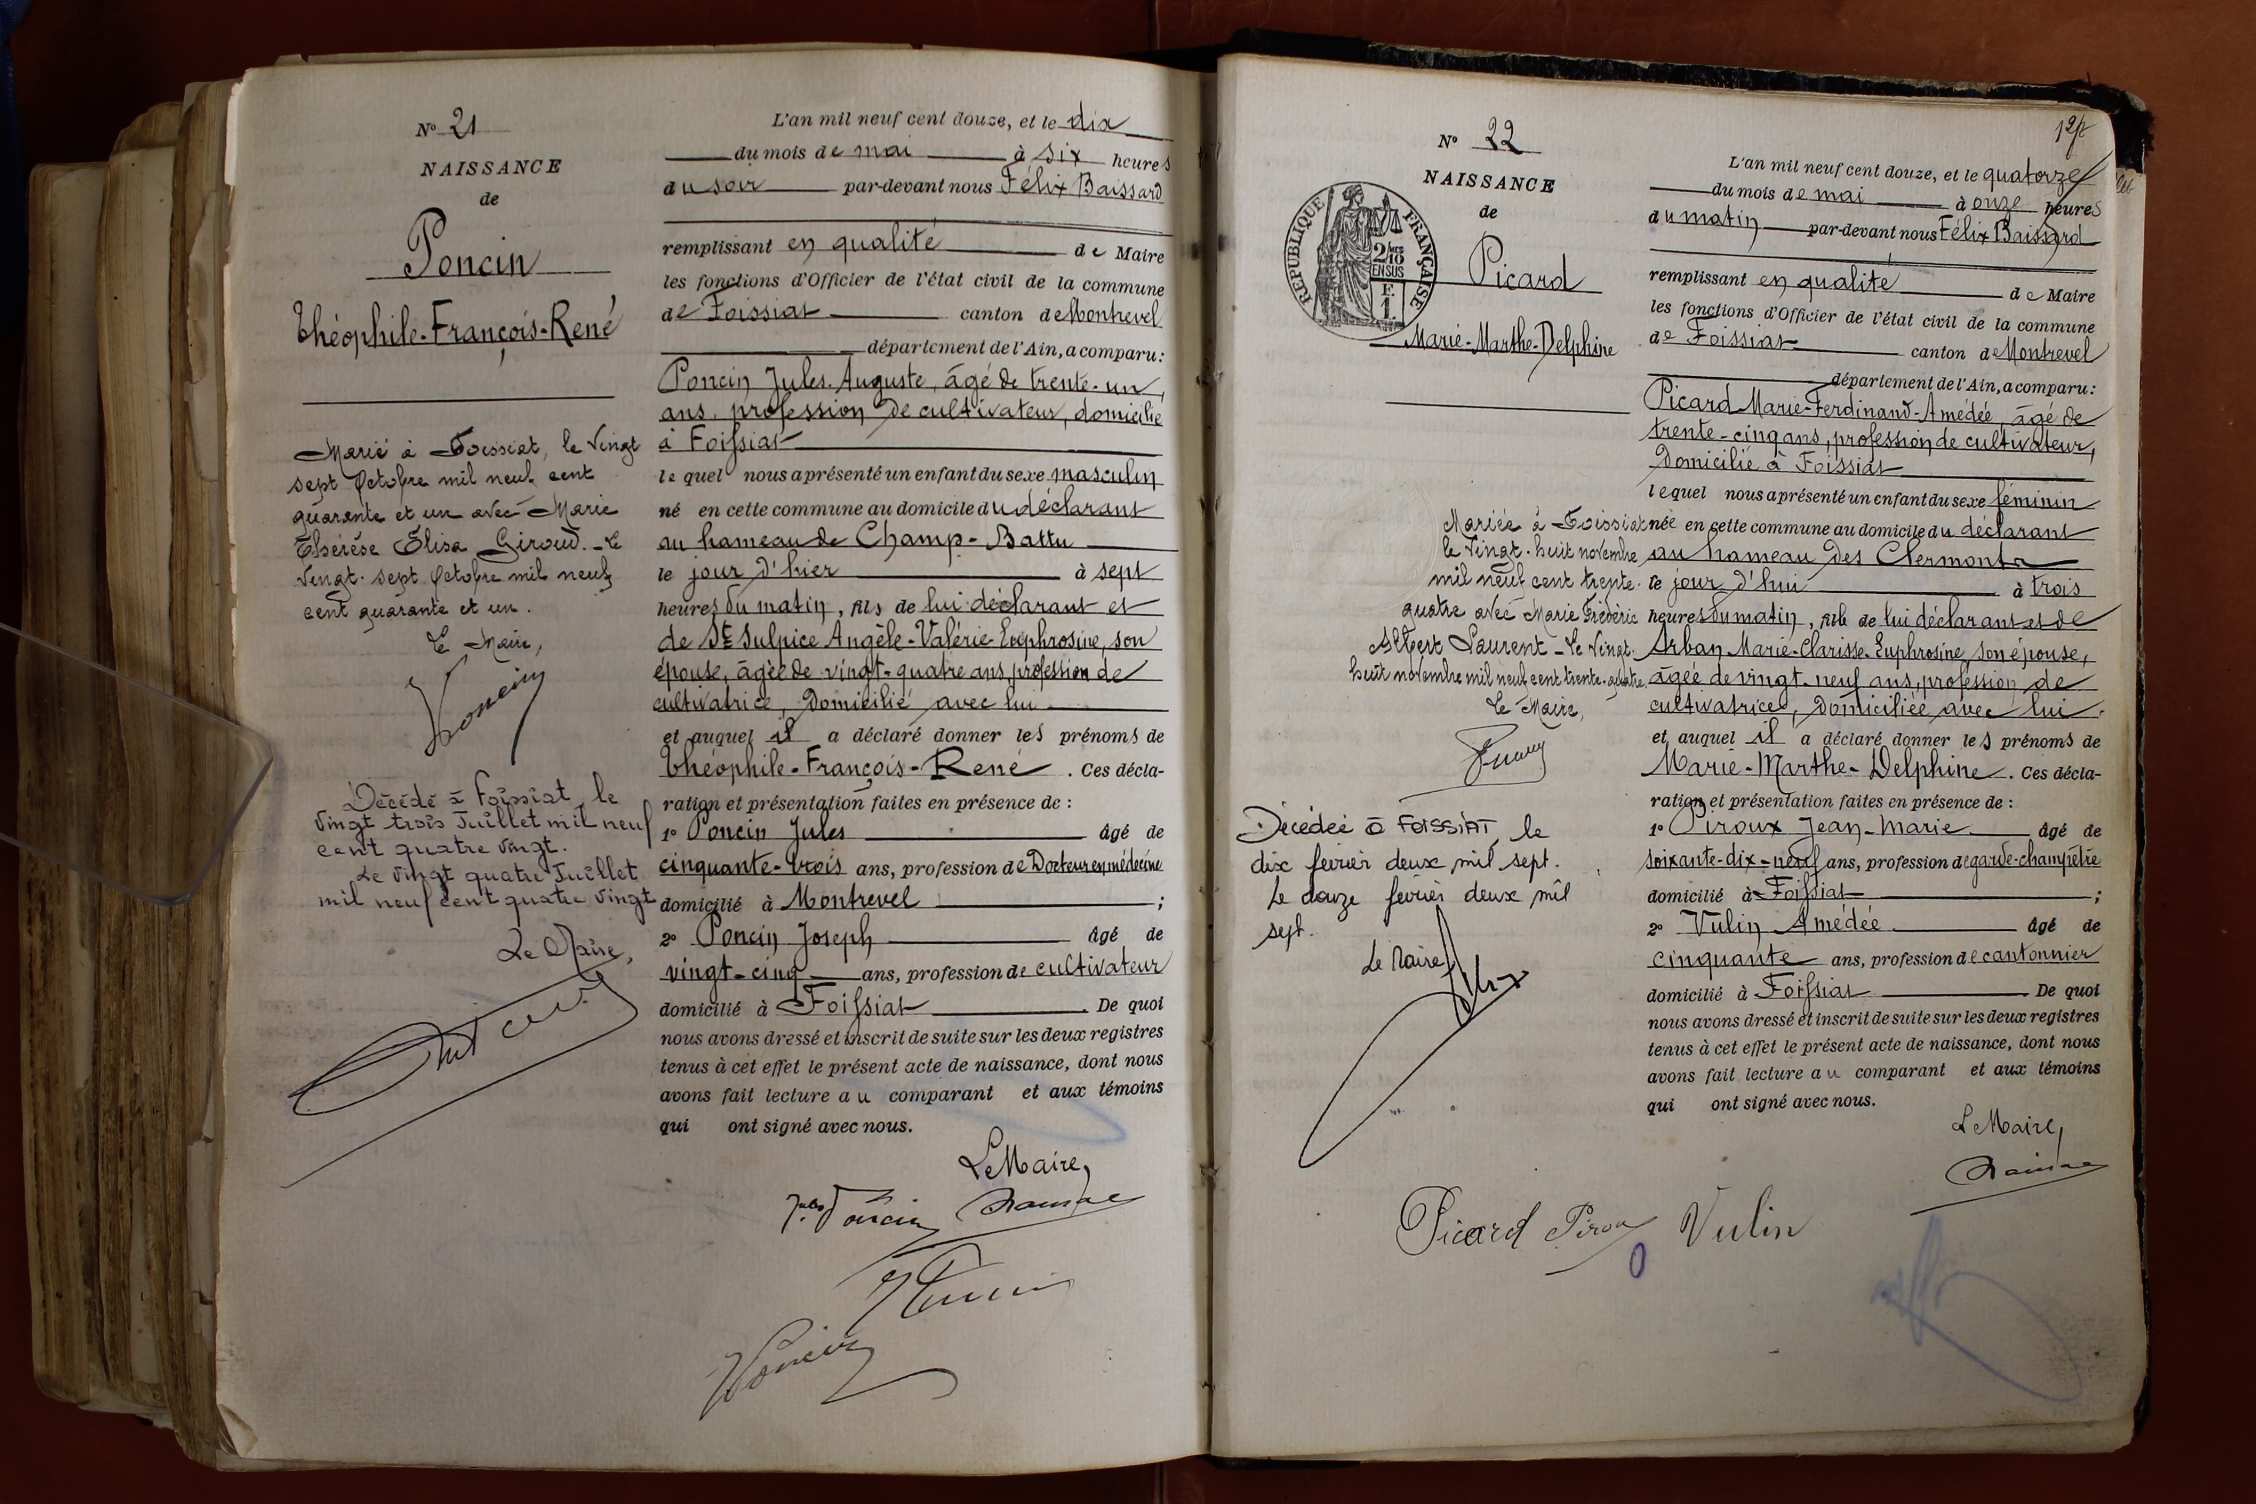 Nº 21
NAISSANCE
de
Poncin
Théophile-François-René
Marié à Foissiat, le vingt
sept Octobre mil neuf cent
quarante et un avec Marie
Thérèse Élisa Giroud. - Le
vingt-sept Octobre mil neuf
cent quarante et un.
Le Maire,
Poncin
Décédé à Foissiat, le
vingt trois Juillet mil neuf
cent quatre vingt.
Le vingt quatre Juillet
mil neuf cent quatre vingt
Le Maire,
L'an mil neuf cent douze, et le dix
du mois de mai à six heures
du soir par-devant nous Félix Baissard
remplissant en qualité de Maire
les fonctions d'Officier de l'état civil de la commune
de Foissiat canton de Montrevel
département de l'Ain, a comparu :
Poncin Jules-Auguste, âgé de trente-un
ans, profession de cultivateur, domicilié
à Foissiat
lequel nous a présenté un enfant du sexe masculin
né en cette commune au domicile du déclarant
au hameau de Champ-Battu
le jour d'hier à sept
heures du matin, fils de lui déclarant et
de St Sulpice Angèle-Valérie-Euphrosine, son
épouse, âgée de vingt-quatre ans, profession de
cultivatrice, domicilié avec lui
et auquel il a déclaré donner les prénoms de
Théophile-François-René. Ces décla-
ration et présentation faites en présence de :
1º Poncin Jules âgé de
cinquante-trois ans, profession de Docteur en médecine
domicilié à Montrevel ;
2º Poncin Joseph âgé de
vingt-cinq ans, profession de cultivateur
domicilié à Foissiat. De quoi
nous avons dressé et inscrit de suite sur les deux registres
tenus à cet effet le présent acte de naissance, dont nous
avons fait lecture au comparant et aux témoins
qui ont signé avec nous.
Le Maire,
Jules Poncin
Poncin
Nº 22
NAISSANCE
de
RÉPUBLIQUE FRANÇAISE
2/10
EN SUS
F.
1.
Picard
Marie-Marthe-Delphine
Mariée à Foissiat
le vingt-huit novembre
mil neuf cent trente-
quatre avec Marie Frédéric
Albert Laurent - Le vingt-
huit novembre mil neuf cent trente-quatre.
Le Maire,
Décédée à FOISSIAT, le
dix février deux mil sept.
Le douze février deux mil
sept.
Le Maire
L'an mil neuf cent douze, et le quatorze
du mois de mai à onze heures
du matin par-devant nous Félix Baissard
remplissant en qualité de Maire
les fonctions d'Officier de l'état civil de la commune
de Foissiat canton de Montrevel
département de l'Ain, a comparu :
Picard Marie-Ferdinand-Amédée, âgé de
trente-cinq ans, profession de cultivateur,
domicilié à Foissiat
lequel nous a présenté un enfant du sexe féminin
née en cette commune au domicile du déclarant
au hameau des Clermonts
le jour d'hui à trois
heures du matin, fille de lui déclarant et de
Arban Marie-Clarisse-Euphrosine, son épouse,
âgée de vingt-neuf ans, profession de
cultivatrice, domiciliée avec lui.
et auquel il a déclaré donner les prénoms de
Marie-Marthe-Delphine. Ces décla-
ration et présentation faites en présence de :
1º Piroux Jean-Marie âgé de
soixante-dix-neuf ans, profession de garde-champêtre
domicilié à Foissiat ;
2º Vulin Amédée âgé de
cinquante ans, profession de cantonnier
domicilié à Foissiat. De quoi
nous avons dressé et inscrit de suite sur les deux registres
tenus à cet effet le présent acte de naissance, dont nous
avons fait lecture au comparant et aux témoins
qui ont signé avec nous.
Le Maire,
Picard Piroux Vulin